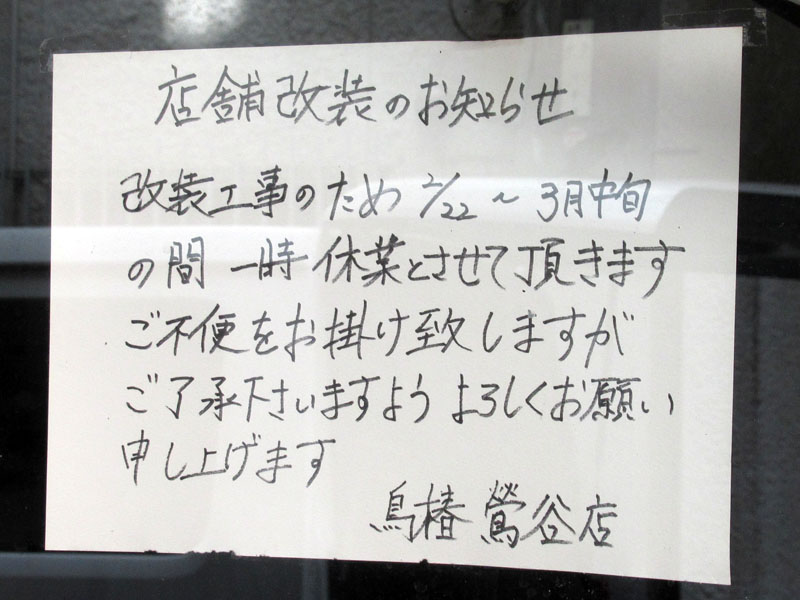 店舗改装のお知らせ
改装工事のため 2/22 ~ 3月中旬
の間 一時 休業とさせて頂きます
ご不便をお掛け致しますが
ご了承下さいますよう よろしくお願い
申し上げます
鳥椿 鶯谷店